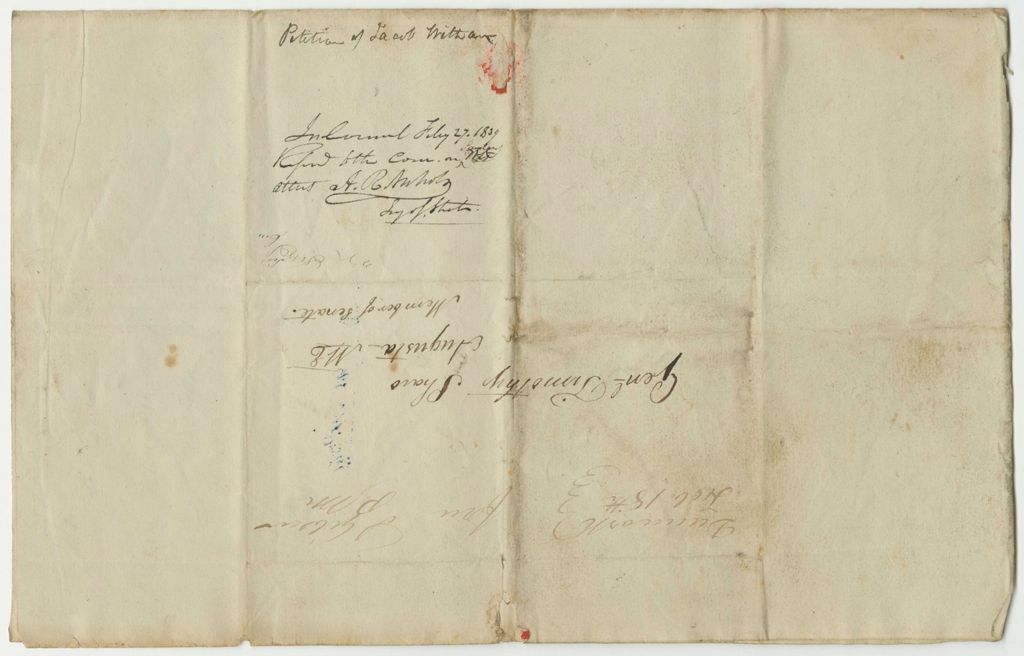 Petition of Jacob Witham
In Council Feby 27. 1839
Referd to the Com. on
attest A. R. Nichols
Secy of State.
Genl Timothy Shaw
Augusta ME
Member of Senate.
Denmark
Feb. 18th